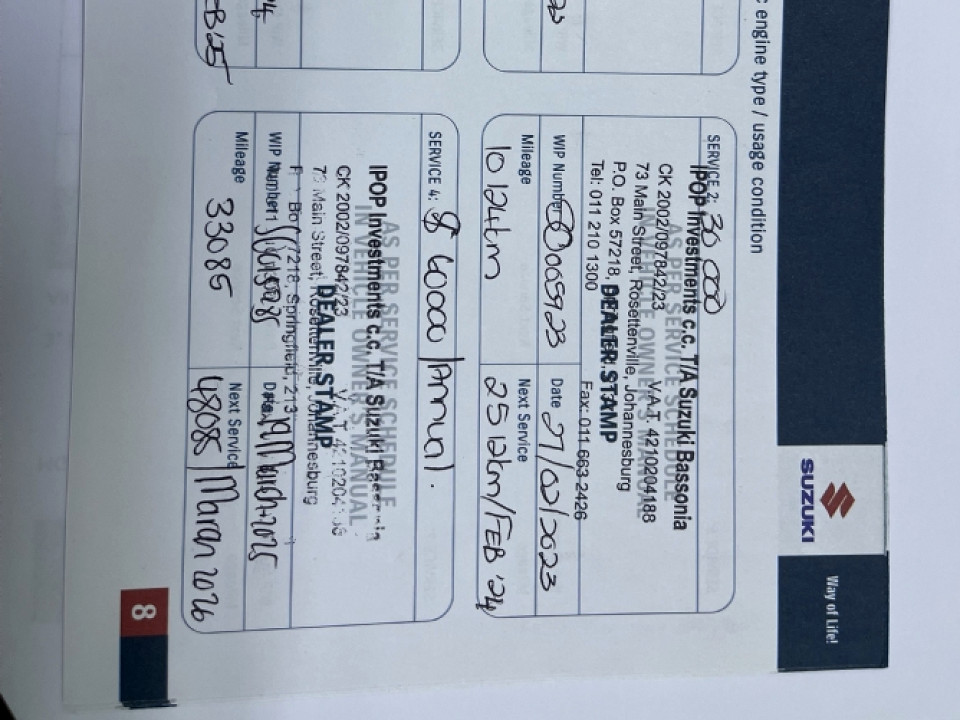 SUZUKI
Way of Life!
c engine type / usage condition
SERVICE 2: 30 000
IPOP Investments c.c. T/A Suzuki Bassonia
AS PER SERVICE SCHEDULE
CK 2002/097842/23 V.A.T. 4210204188
IN VEHICLE OWNER'S MANUAL
73 Main Street, Rosettenville, Johannesburg
P.O. Box 57218,
DEALER STAMP
Tel: 011 210 1300 Fax: 011 663 2426
WIP Number Date 27/02/2023
Mileage Next Service
10124km 2512km/FEB '24
SERVICE 4: 60000 / Annual.
AS PER SERVICE SCHEDULE
IPOP Investments c.c. T/A Suzuki
IN VEHICLE OWNER'S MANUAL
CK 2002/097842/23 V.A.T.
DEALER STAMP
73 Main Street, Rosettenville, Johannesburg
Springfield,
WIP Number Date 19 March 2025
Mileage Next Service
33085 48085 / March 2026
8